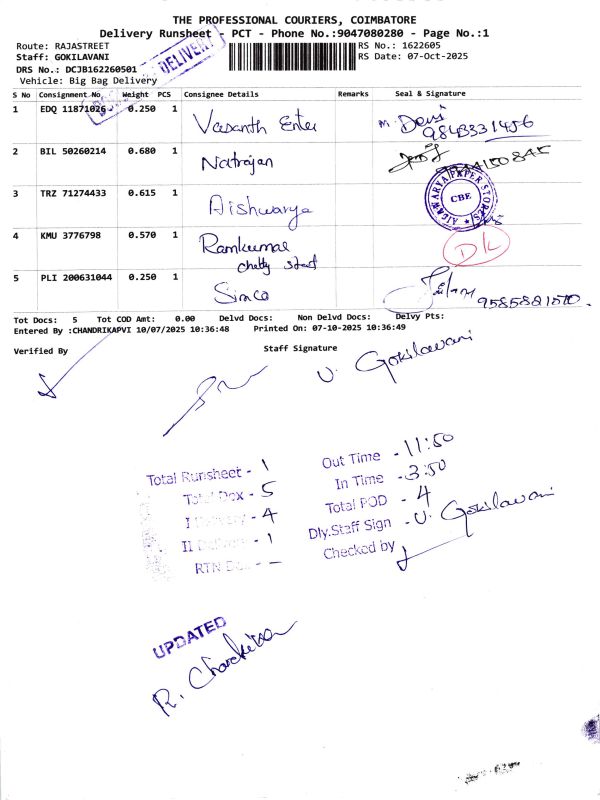 THE PROFESSIONAL COURIERS, COIMBATORE
Delivery Runsheet - PCT - Phone No.:9047080280 - Page No.:1
Route: RAJASTREET
RS No.: 1622605
Staff: GOKILAVANI
RS Date: 07-Oct-2025
DRS No.: DCJB162260501
DELIVERY
Vehicle: Big Bag Delivery
S No Consignment No. Weight PCS Consignee Details Remarks Seal & Signature
1 EDQ 11871026 0.250 1 Vasanth Enter M. Devi 9843331456
2 BIL 50260214 0.680 1 Natrajan
3 TRZ 71274433 0.615 1 Aishwarya
AISHWARYA PAPER STORES CBE
4 KMU 3776798 0.570 1 Ramkumar DL
chetty street
5 PLI 200631044 0.250 1 Simco
Tot Docs: 5 Tot COD Amt: 0.00 Delvd Docs: Non Delvd Docs: Delvy Pts:
Entered By :CHANDRIKAPVI 10/07/2025 10:36:48 Printed On: 07-10-2025 10:36:49
Verified By Staff Signature
V. Gokilavani
Total Runsheet - 1
Total Dox - 5
I Delivery - 4
II Delivery - 1
RTN Dox - —
Out Time - 11:50
In Time - 3:50
Total POD - 4
Dly.Staff Sign - V. Gokilavani
Checked by
UPDATED
R. Chandrika